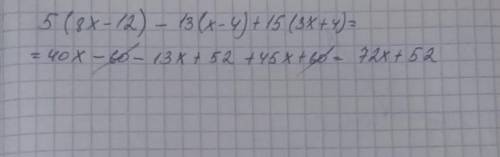 5(8x-12)-13(x-4)+15(3x+4)=
=40x-60-13x+52+45x+60=72x+52